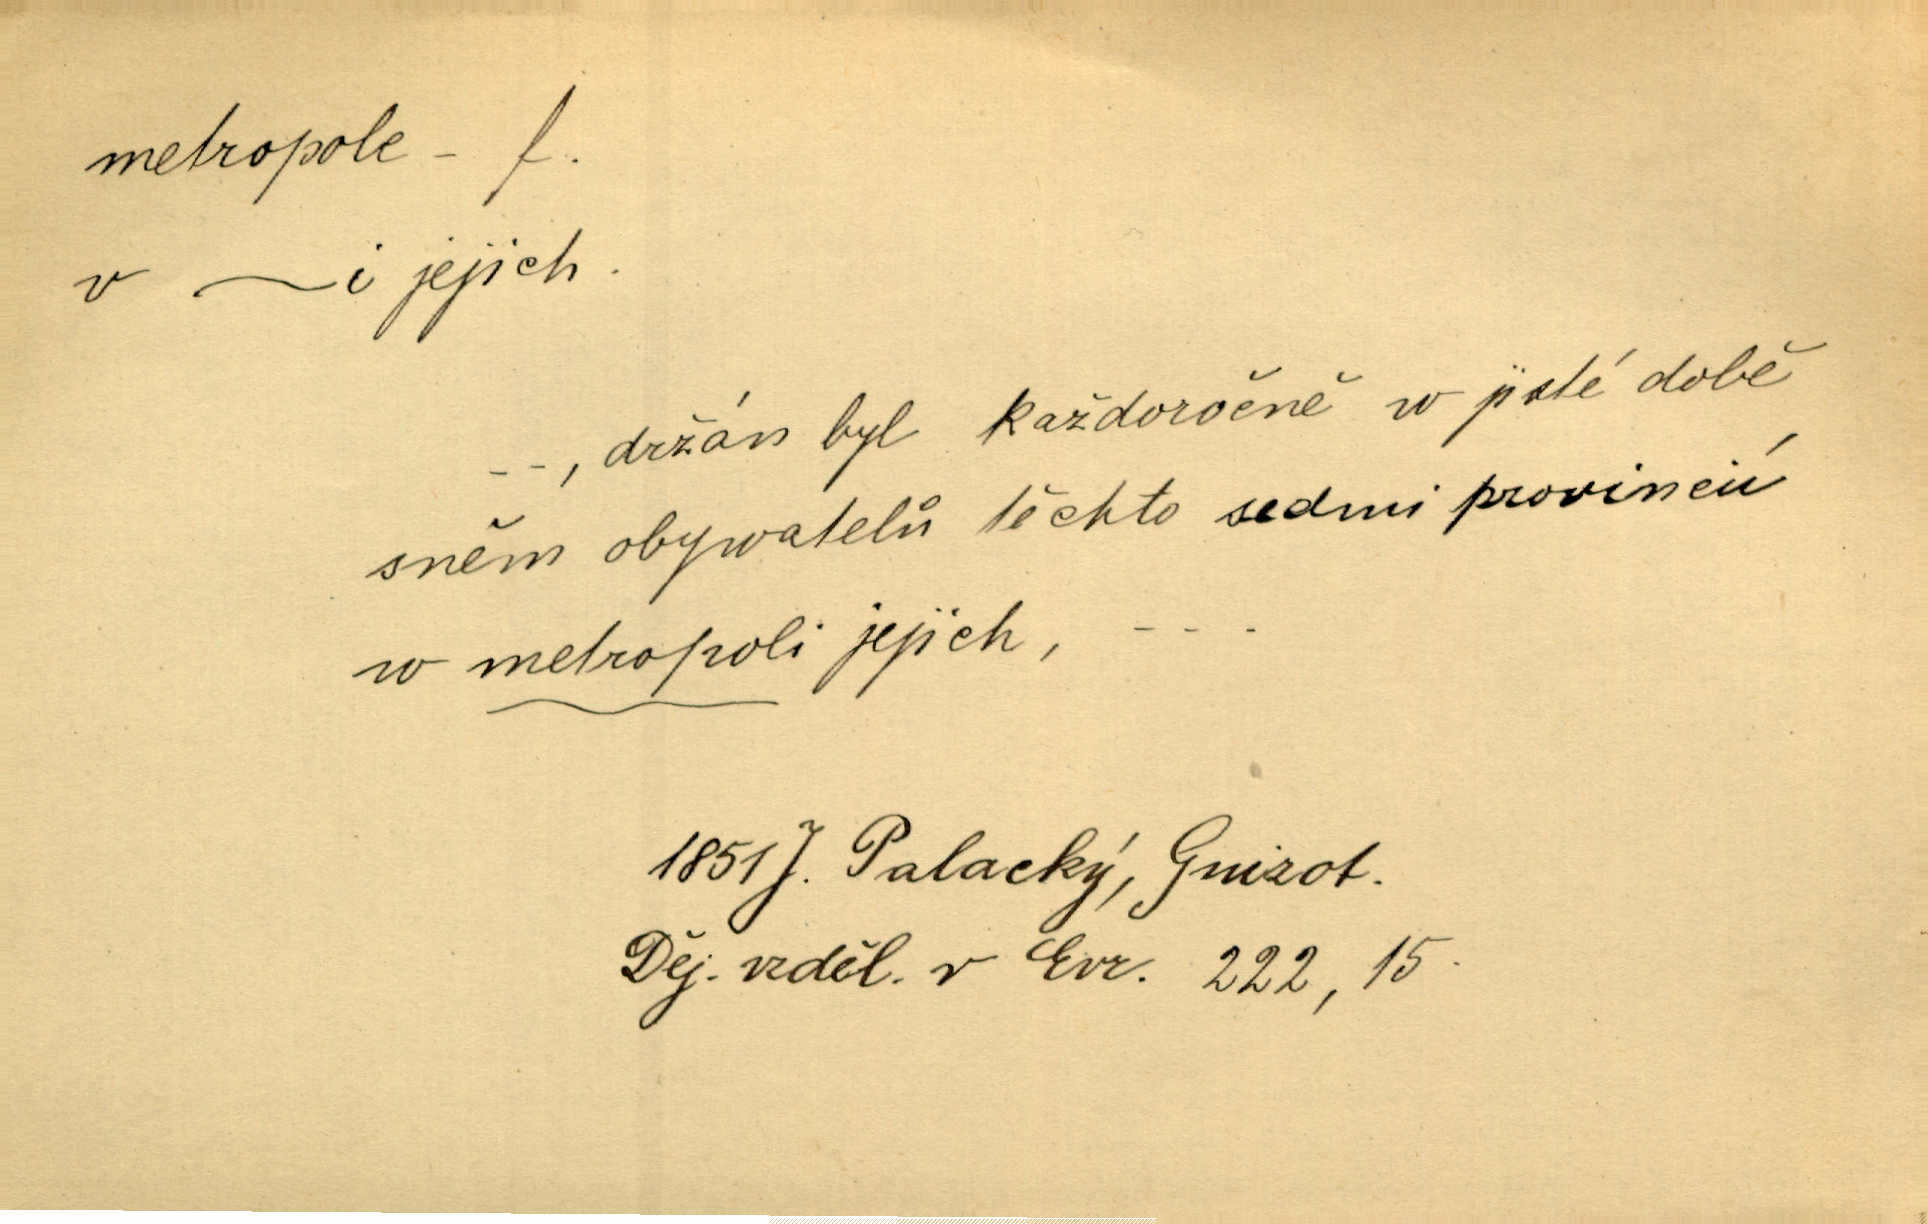 metropole - f.
v ~i jejich.
--, držán byl každoročně w jisté době
sněm obywatelů těchto sedmi provincií
w metropoli jejich, ---
1851 J. Palacký, Guizot.
Děj. vzděl. v Evr. 222, 15.